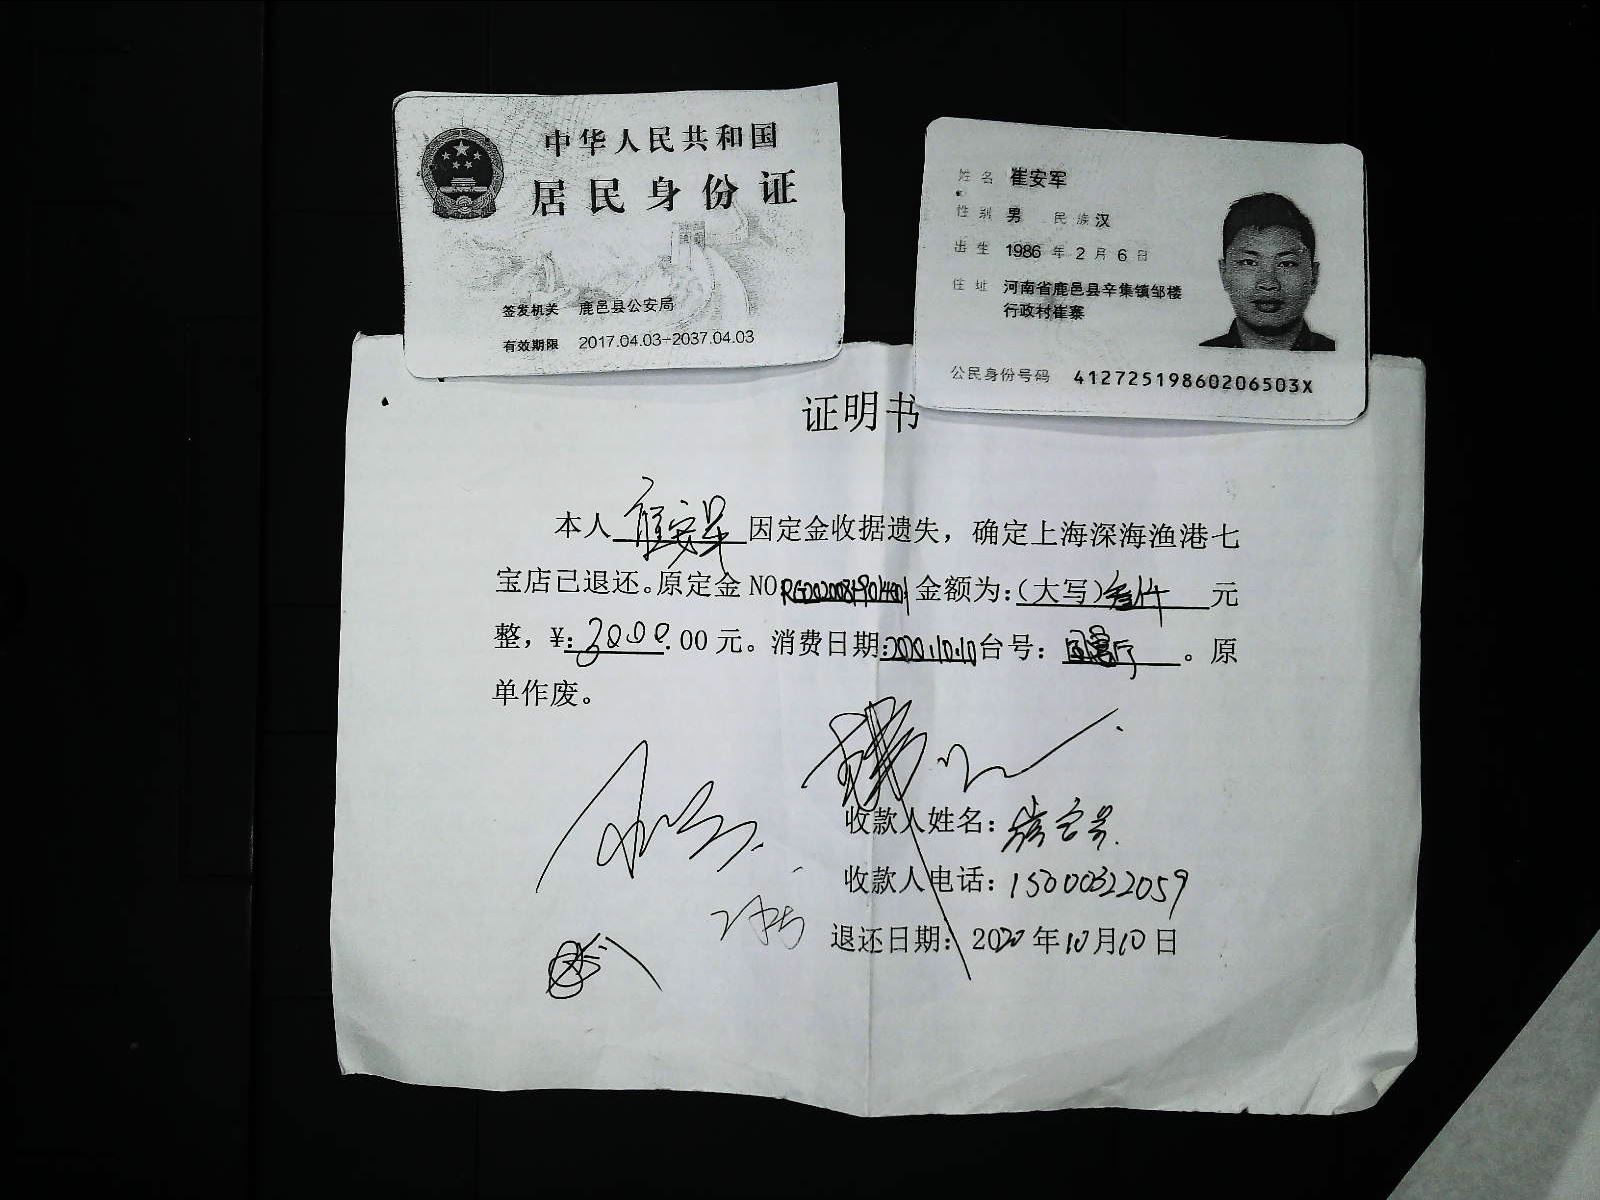 中华人民共和国
居民身份证
签发机关 鹿邑县公安局
有效期限 2017.04.03-2037.04.03
姓名 崔安军
性别 男 民族 汉
出生 1986 年 2 月 6 日
住址 河南省鹿邑县辛集镇邹楼
行政村崔寨
公民身份号码 41272519860206503X
证明书
本人 崔安军 因定金收据遗失，确定上海深海渔港七
宝店已退还。原定金 NO 金额为：（大写）叁仟 元
整，¥：3000.00 元。消费日期：2020.10.10 台号： 。原
单作废。
收款人姓名：崔安军
收款人电话：15000322059
退还日期：2020 年 10 月 10 日